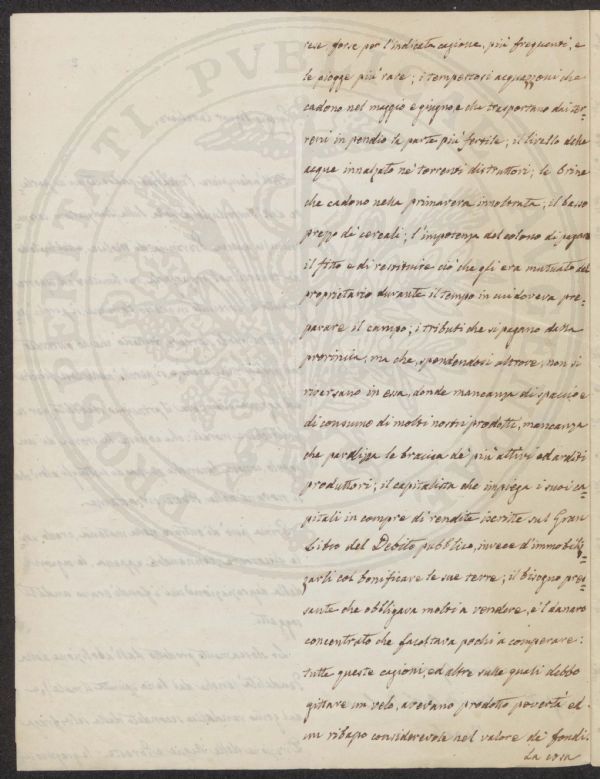 rese forse per l'indicata cagione, più frequenti, e
le piogge più rare; i tempestosi acquazzoni che
cadono nel maggio e giugno e che trasportano dai ter=
reni in pendio la parte più fertile; il livello delle
acque innalzato ne' torrenti distruttori; le brine
che cadono nella primavera innoltrata; il basso
prezzo dè cereali; l'impotenza del colono di pagare
il fitto e di restituire ciò che gli era mutuato dal
proprietario durante il tempo in cui doveva pre=
parare il campo; i tributi che si pagano dalla
provincia, ma che, spendendosi altrove, non si
riversano in essa, donde mancanza di spaccio e
di consumo di molti nostri prodotti, mancanza
che paralizza le braccia de' più attivi ed arditi
produttori; il capitalista che impiega i suoi ca=
pitali in compre di rendite iscritte sul Gran
Libro del Debito pubblico, invece d'immobiliz=
zarli col bonificare le sue terre; il bisogno pres=
sante che obbligava molti a vendere, e 'l danaro
concentrato che facoltava pochi a comperare:
tutte queste cagioni, ed altre sulle quali debbo
gittare un velo, avevano prodotto povertà ed
un ribasso considerevole nel valore de' fondi.
La cosa
PROSPERITATI PUBLICAE